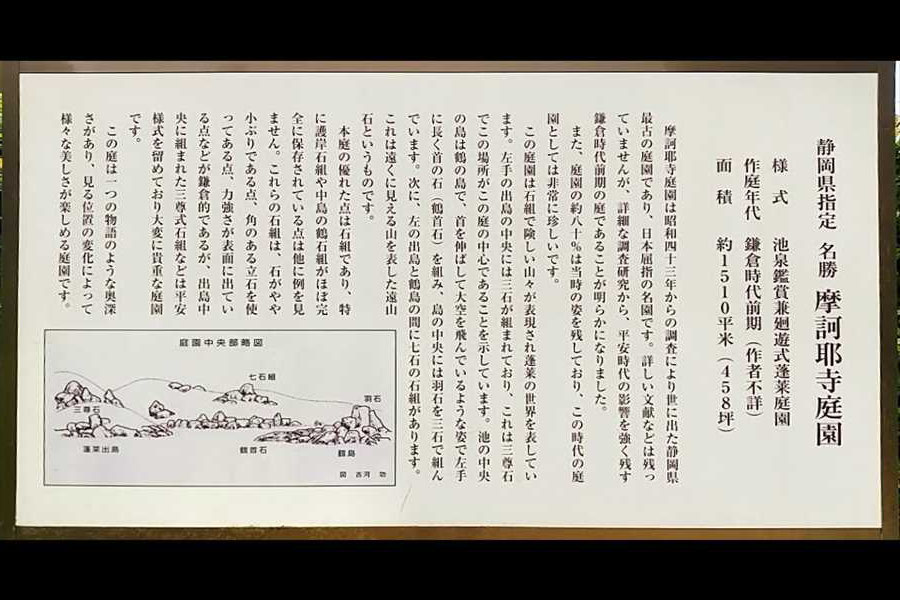 静岡県指定 名勝 摩訶耶寺庭園
様式 池泉鑑賞兼廻遊式蓬莱庭園
作庭年代 鎌倉時代前期（作者不詳）
面積 約1510平米（458坪）
摩訶耶寺庭園は昭和四十三年からの調査により世に出た静岡県
最古の庭園であり、日本屈指の名園です。詳しい文献などは残っ
ていませんが、詳細な調査研究から、平安時代の影響を強く残す
鎌倉時代前期の庭であることが明らかになりました。
また、庭園の約八十％は当時の姿を残しており、この時代の庭
園としては非常に珍しいです。
この庭園は石組で険しい山々が表現され蓬莱の世界を表してい
ます。左手の出島の中央には三石が組まれており、これは三尊石
でこの場所がこの庭の中心であることを示しています。池の中央
の島は鶴の島で、首を伸ばして大空を飛んでいるような姿で左手
に長く首の石（鶴首石）を組み、島の中央には羽石を三石で組ん
でいます。次に、左の出島と鶴島の間に七石の石組があります。
これは遠くに見える山を表した遠山
石というものです。
本庭の優れた点は石組であり、特
に護岸石組や中島の鶴石組がほぼ完
全に保存されている点は他に例を見
ません。これらの石組は、石がやや
小ぶりである点、角のある立石を使
ってある点、力強さが表面に出てい
る点などが鎌倉的であるが、出島中
央に組まれた三尊式石組などは平安
様式を留めており大変に貴重な庭園
です。
この庭は一つの物語のような奥深
さがあり、見る位置の変化によって
様々な美しさが楽しめる庭園です。
庭園中央部略図
七石組
羽石
三尊石
蓬莱出島
鶴首石
鶴島
図 古河 功